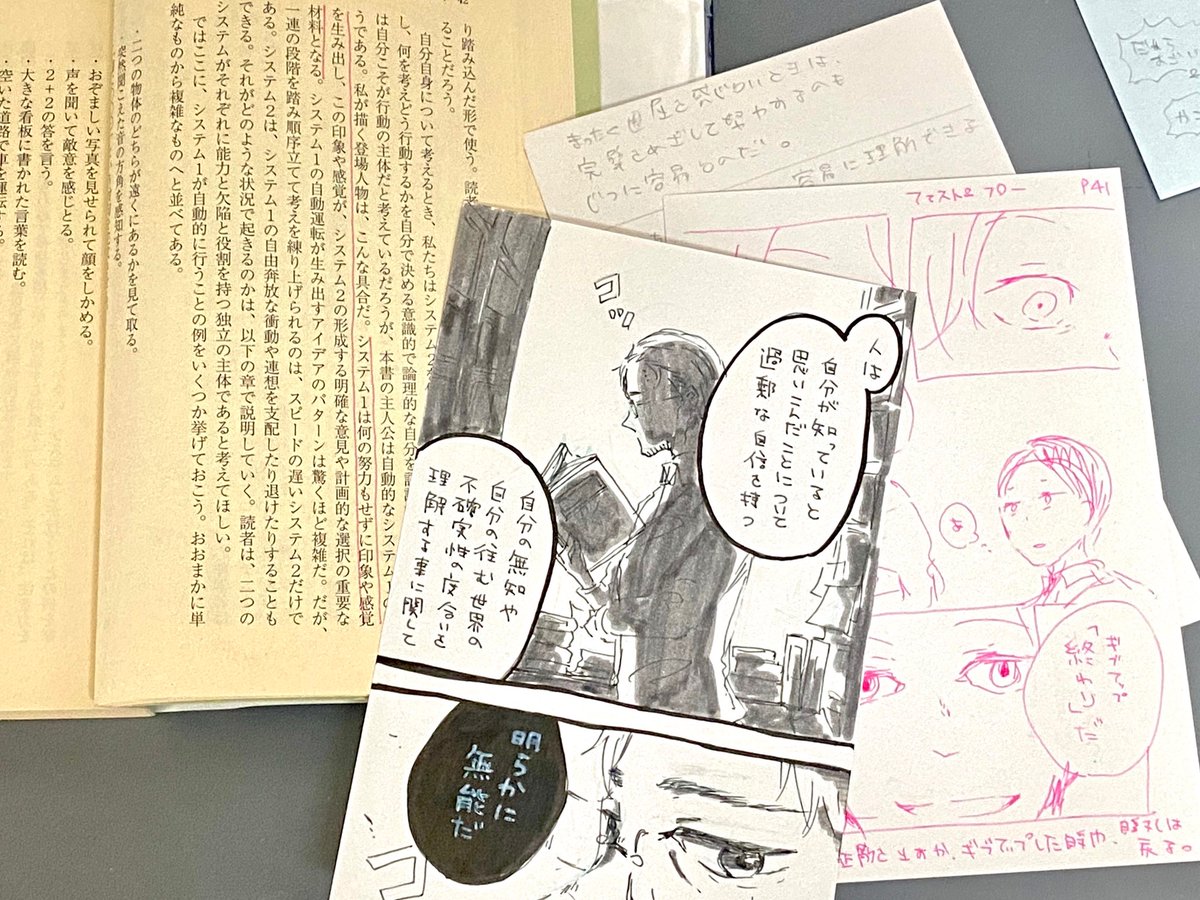 42
り踏み込んだ形で使う。読者
ることだろう。
自分自身について考えるとき、私たちはシステム2を
し、何を考えどう行動するかを自分で決める意識的で論理的な自分を
は自分こそが行動の主体だと考えているだろうが、本書の主人公は自動的なシステム1の
うである。私が描く登場人物は、こんな具合だ。システム1は何の努力もせずに印象や感覚
を生み出し、この印象や感覚が、システム2の形成する明確な意見や計画的な選択の重要な
材料となる。システム1の自動運転が生み出すアイデアのパターンは驚くほど複雑だ。だが、
一連の段階を踏み順序立てて考えを練り上げられるのは、スピードの遅いシステム2だけで
ある。システム2は、システム1の自由奔放な衝動や連想を支配したり退けたりすることも
できる。それがどのような状況で起きるのかは、以下の章で説明していく。読者は、二つの
システムがそれぞれに能力と欠陥と役割を持つ独立の主体であると考えてほしい。
ではここに、システム1が自動的に行うことの例をいくつか挙げておこう。おおまかに単
純なものから複雑なものへと並べてある。
・二つの物体のどちらが遠くにあるかを見て取る。
・突然聞こえた音の方角を感知する。
・おぞましい写真を見せられて顔をしかめる。
・声を聞いて敵意を感じとる。
・2+2の答を言う。
・大きな看板に書かれた言葉を読む。
・空いた道路で車を運転する。
人は
自分が知っていると
思いこんだことについて
過剰な自信を持つ
コ
自分の無知や
自分の住む世界の
不確実性の度合いを
理解する事に関して
明らかに
無能だ
コ
まったく
じつに容易なのだ。
容易に理解できる
ファスト&スロー
P41
あ
ギブアップ
「終わり」だ
ギブアップした瞬間、
戻る。